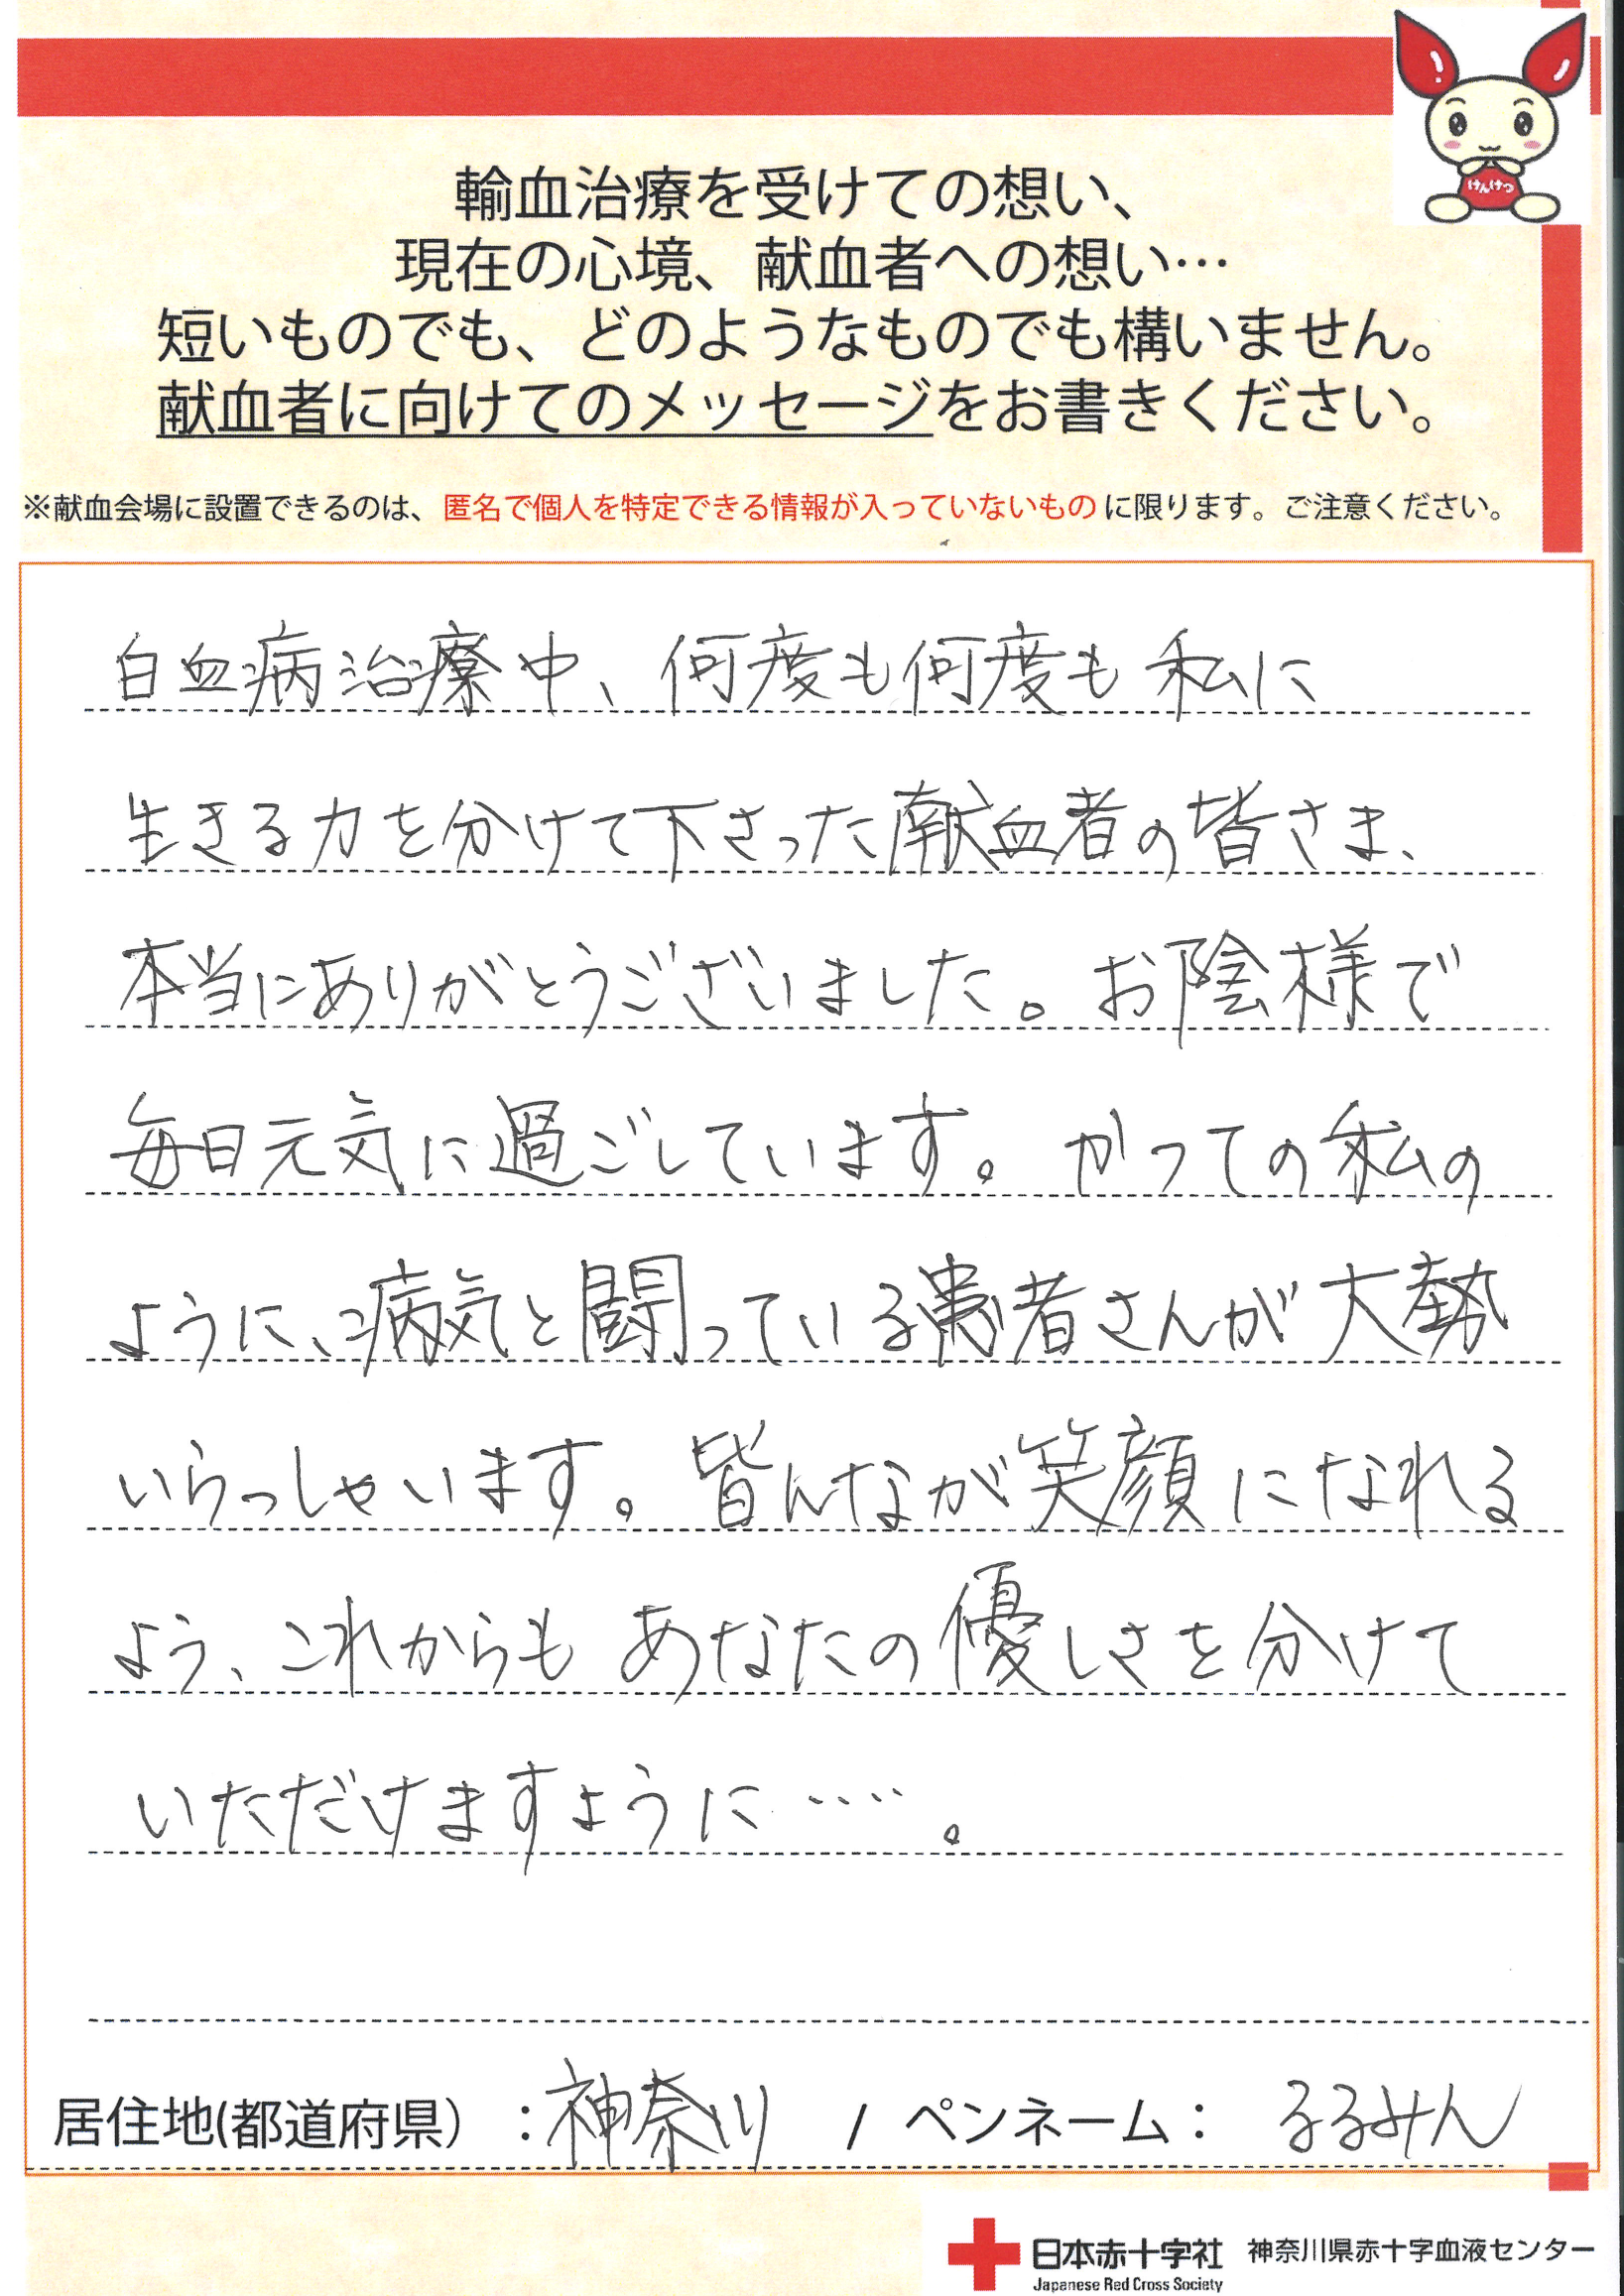 けんけつ
輸血治療を受けての想い、
現在の心境、献血者への想い…
短いものでも、どのようなものでも構いません。
献血者に向けてのメッセージをお書きください。
※献血会場に設置できるのは、匿名で個人を特定できる情報が入っていないものに限ります。ご注意ください。
白血病治療中、何度も何度も私に
生きる力を分けて下さった献血者の皆さま、
本当にありがとうございました。お陰様で
毎日元気に過ごしています。かつての私の
ように、病気と闘っている患者さんが大勢
いらっしゃいます。皆んなが笑顔になれる
よう、これからもあなたの優しさを分けて
いただけますように….。
居住地(都道府県）：神奈川 / ペンネーム： るるみん
日本赤十字社 神奈川県赤十字血液センター
Japanese Red Cross Society